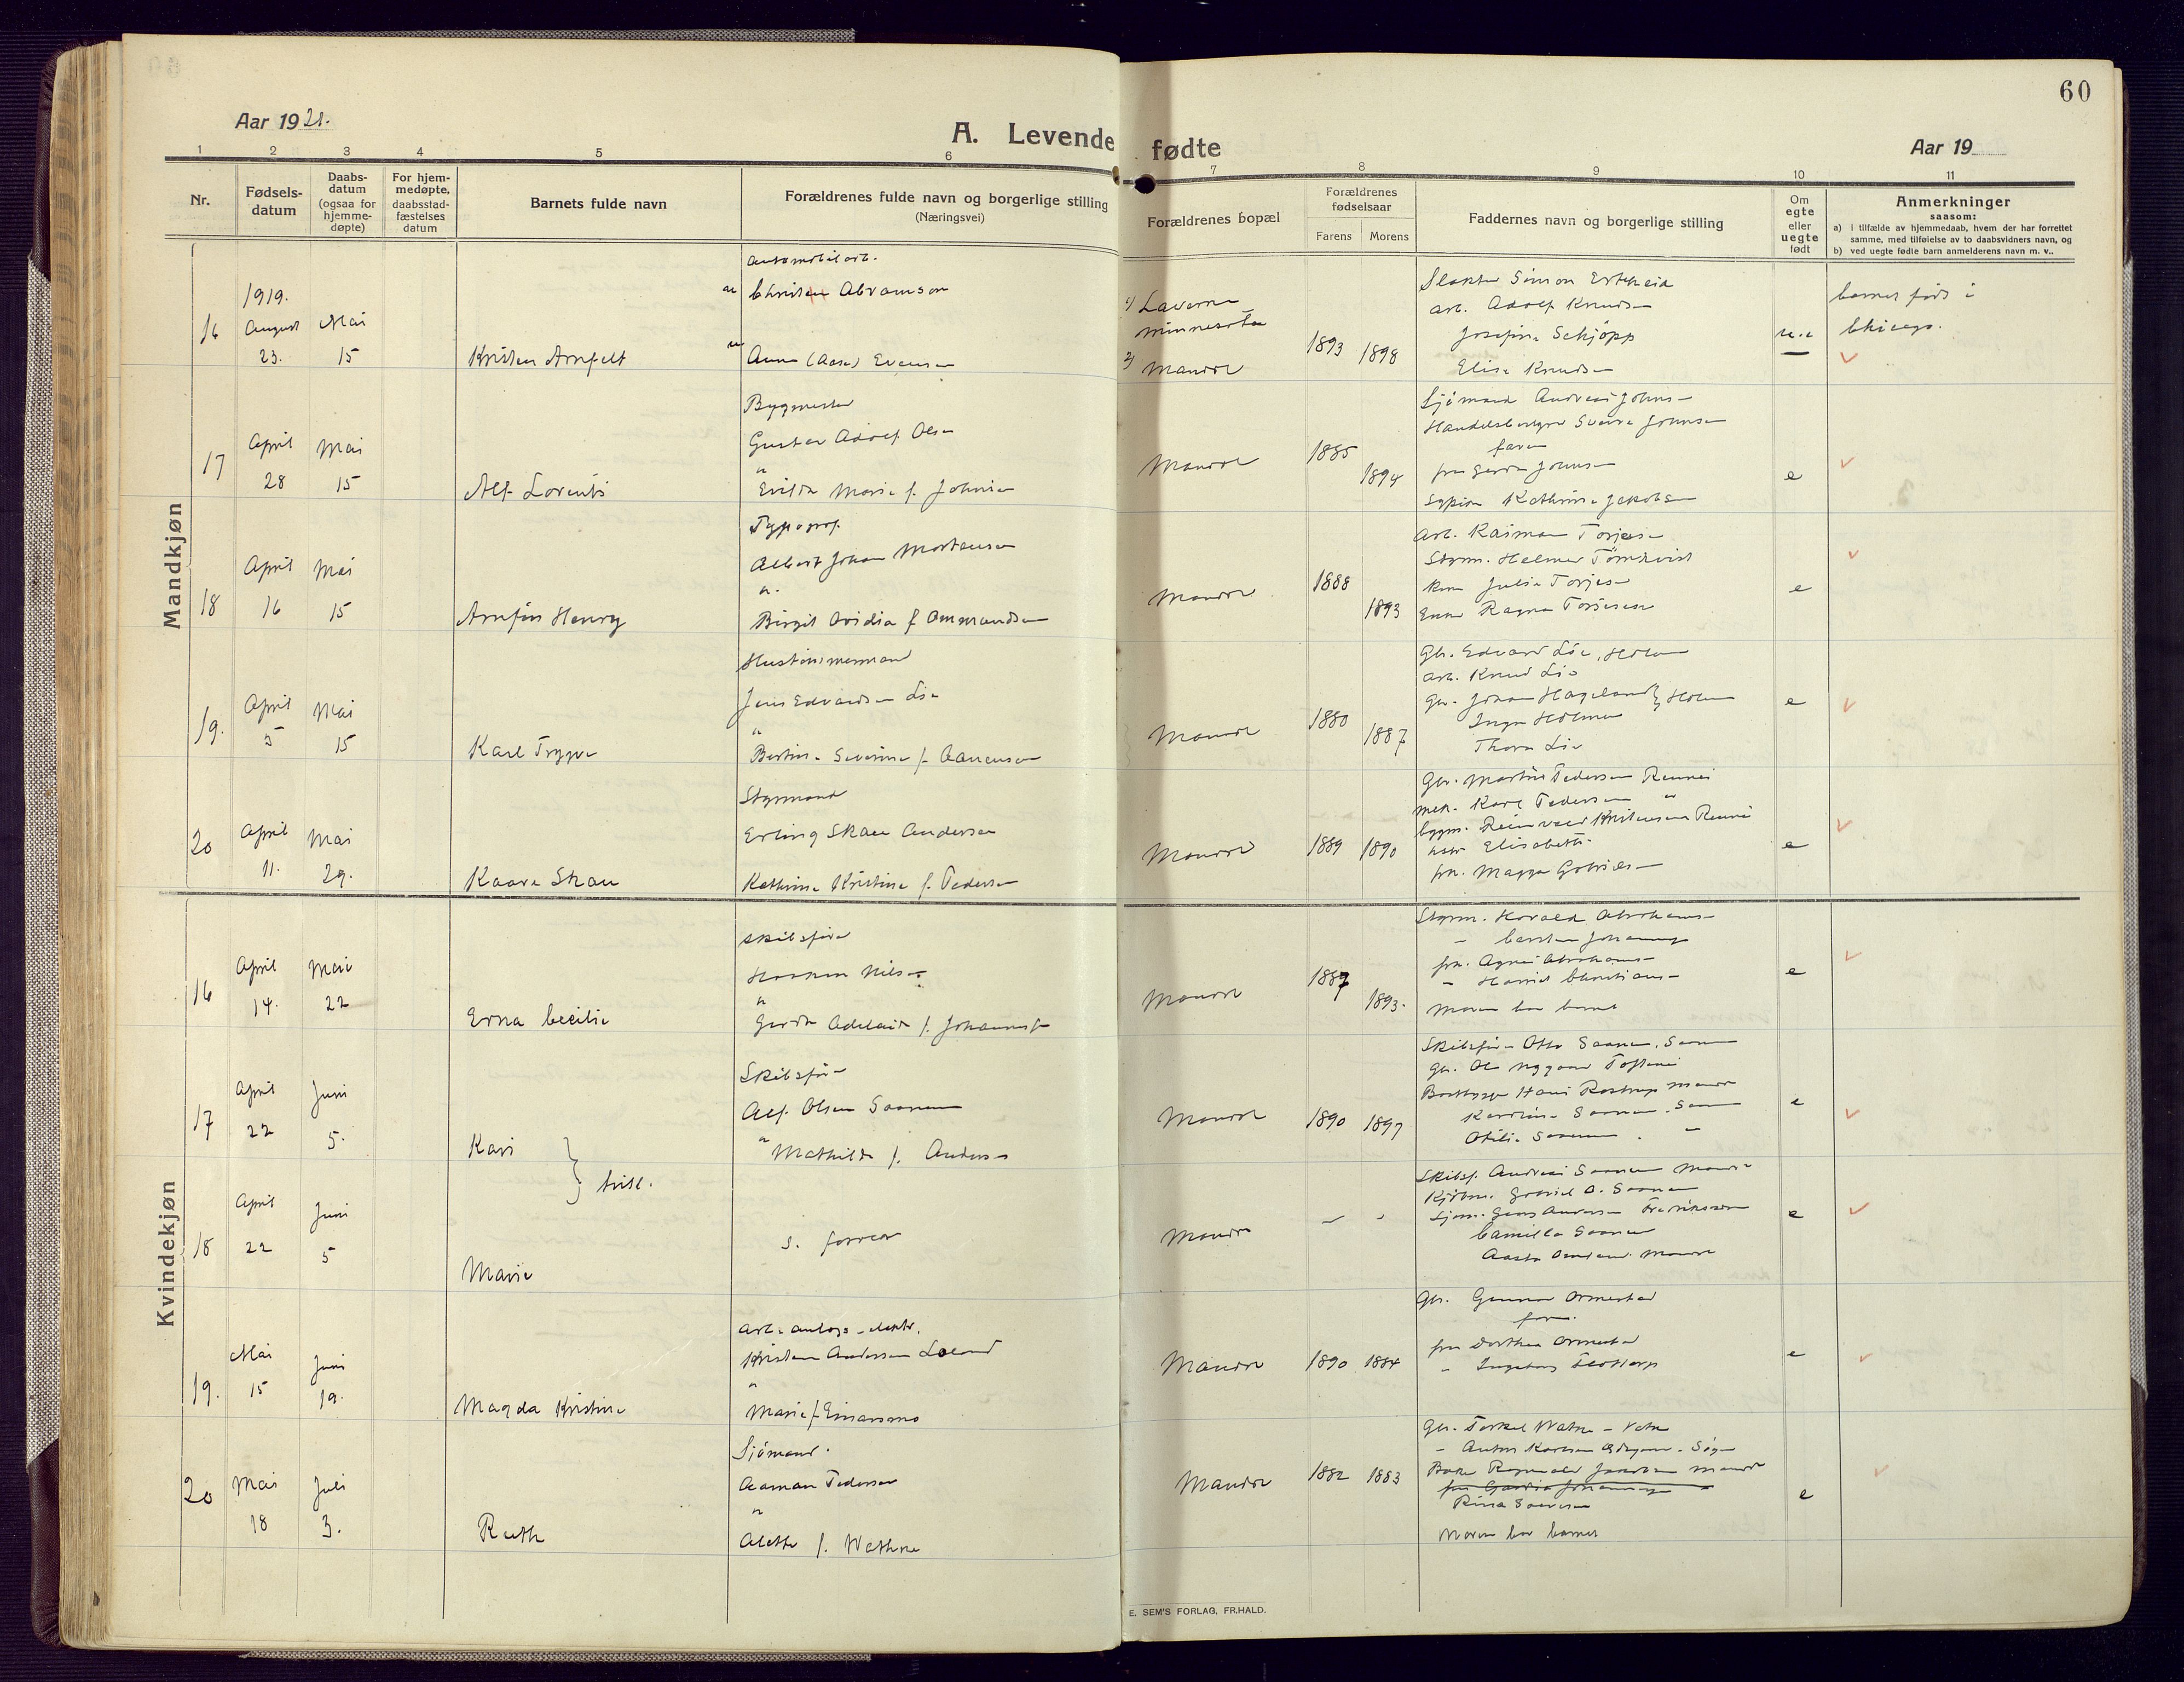 60
Aar 1921.
A. Levende fødte
Aar 19
1 2 3 4 5 6 7 8 9 10 11
Nr.
Fødsels-
datum
Daabs-
datum
(ogsaa for
hjemme-
døpte)
For hjem-
medøpte,
daabsstad-
fæstelses
datum
Barnets fulde navn
Forældrenes fulde navn og borgerlige stilling
(Næringsvei)
Forældrenes bopæl
Forældrenes
fødselsaar
Farens Morens
Faddernes navn og borgerlige stilling
Om
egte
eller
uegte
født
Anmerkninger
saasom:
a) i tilfælde av hjemmedaab, hvem der har forrettet
samme, med tilføielse av to daabsvidners navn, og
b) ved uegte fødte barn anmelderens navn m. v..
Mandkjøn
16
1919.
August
23.
Mai
15
Kristen Arnfelt
Automobilarb.
Christen Abramsen
Anna (Aasa) Evensen
1) Laverne
Minnesota
2) Mandal
1893 1898
Slakter Simon Ertzeid
Arb. Adolf Knudsen
Josefine Schjöpp
Elise Knudsen
u.e
barnet født i
Chicago.
17
April
28
Mai
15
Alf Lorents
Bygmester
Gustav Adolf Olsen
Marie f. Johnsen
Mandal
1885
1894
Sjömand Andreas Johnsen
Sverre Johnsen
faren
fru Gerda Johnsen
Kathrine Jakobsen
e
18
April
16
Mai
15
Arnfin Henry
Typogr.
Albert Johan Mortensen
Birgit Ovidia f. Ommundsen
Mandal
1888
1893
Arb. Rasmus Torjesen
Styrm. Helmer Törnkvist
Julie Torjesen
Enke Ragna Torjesen
e
19.
April
5
Mai
15
Karl Trygve
Hustömmermand
Jens Edvardsen Lie
Bertine Severine f. Aanensen
Mandal
1880
1887
Gb. Edvard Lie, Holum
Arb. Knud Lie
Gb. Johan Hageland, Holum
Inga Holmen
Thora Lie
e
20
April
11.
Mai
29.
Kaare Skau
Styrmand
Erling Skau Andersen
Kathrine Kristine f. Pedersen
Mandal
1889 1890
Gb. Martin Pedersen
mek. Karl Pedersen
bygm. Kristensen
Elisabeth
frk. Magga Gabrielsen
e
Kvindekjøn
16
April
14.
Mai
22
Erna Cecilie
Skibsfører
Haakon Nilsen
Gerda Adelaide f. Johannesen
Mandal
1887
1893.
Styrm. Harald Abrahamsen
Carsten Johannesen
frk. Agnes Abrahamsen
Harriet Christiansen
Moren bar barnet
e
17
April
22
Juni
5.
Kari
} tvill.
Skibsfør
Alf Olsen Saanum
Mathilde f. Andersen
Mandal
1890 1897
Skibsfør. Otto Saanum, Saanum
Gb. Ole Nygaard
Hans Rostrup Mandal
Karoline Saanum, Saanum
Otilie Saanum
e
18
April
22
Juni
5
Marie
s. forrea
Mandal
Skibsf. Andreas Saanum Mandal
Kjöbm. Gabriel O. Saanum
Sjöm. Georg Andersen Fredrikstad
Camilla Saanum
Aasta Mandal
e
19.
Mai
15
Juni
19.
Magda Kristine
Kristen Andersen Loland
Marie f. Einarsmo
Mandal
1890 1884
Gb. Gunnar Ormestad
faren.
fru Dorthea Ormestad
Ingeborg
e
20
Mai
18
Juli
3.
Ruth
Sjömand.
Aamon Pedersen
Alette f. Wathne
Mandal
1882 1883
Gb. Torkel Watne - Vatne
Anton Karlsen - Søgne
Jakobsen Mandal
Rina
Moren bar barnet
e
E. SEM'S FORLAG, FR.HALD.